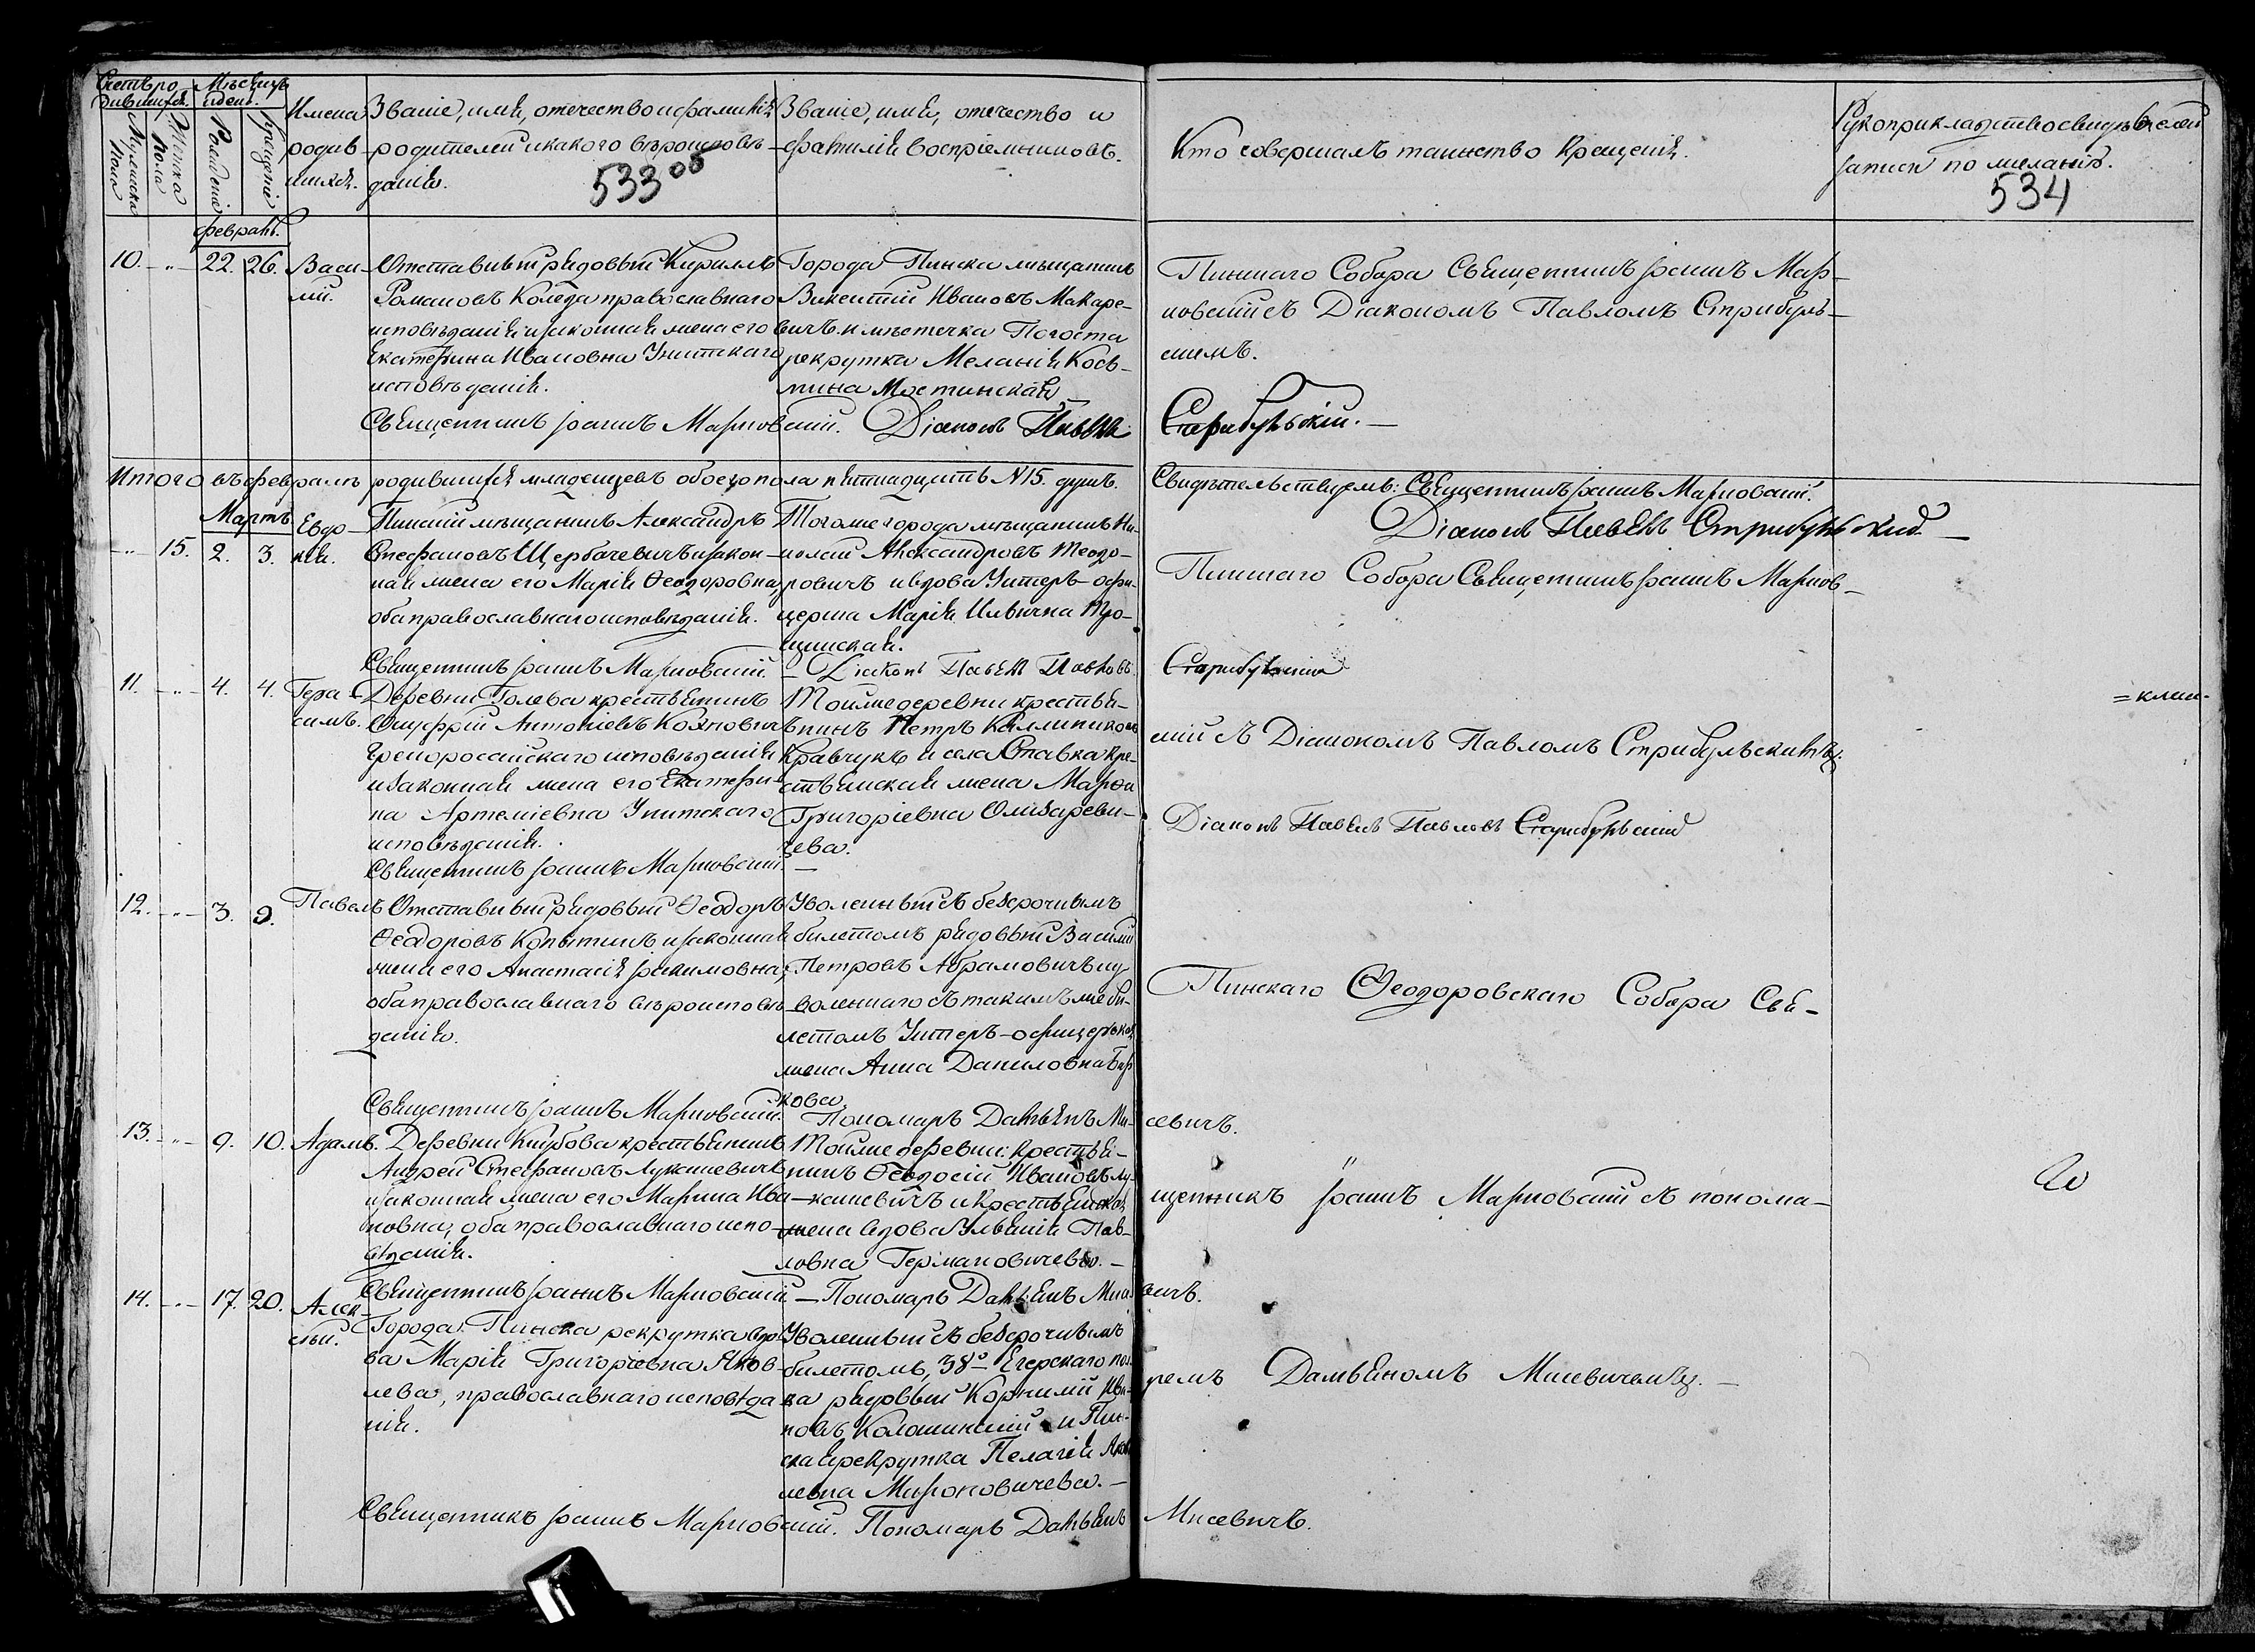 Счетъ ро
дившихся.
Мѣсяцъ
и день.
Мужеска
пола
Женска
пола
Рожденія
Крещенія
Имена
родив
шихся.
Званіе, имя, отчество и фамилія
родителей и какого вѣроисповѣ-
данія.
533 об
Званіе, имя, отчество и
фамилія воспріемниковъ.
Кто совершалъ таинство Крещенія.
Рукоприкладство свидѣтелей
записи по желанію.
534
Февраль.
10. - „ - 22. 26. Васи-
лій.
Отставный рядовый Кириллъ
Романовъ Коледа православнаго
исповѣданія и законная жена его
Екатерина Ивановна Унитскаго
исповѣданія.
Города Пинска мѣщанинъ
Викентій Ивановъ Макаре-
вичъ и мѣстечка Погоста
рекрутка Меланія Кось-
мина Мостинская
Пинскаго Собора Священникъ Іоаннъ Мар-
новскій съ Діакономъ Павломъ Стрибуль-
скимъ.
Священникъ Іоаннъ Марновскій. Діаконъ Павелъ Стрибульскій. —
Итого въ февралѣ родившихся младенцевъ обоего пола пятнадцать N 15. душъ.
Свидѣтельствуемъ: Священникъ Іоаннъ Марновскій.
Діаконъ Павелъ Стрибульскій. —
Мартъ
- „ - 15. 2. 3. Евдо-
кія.
Пинскій мѣщанинъ Александръ
Стефановъ Щербачевичъ и закон-
ная жена его Марія Ѳеодоровна,
оба православнаго исповѣданія.
Тогоже города мѣщанинъ Ни-
колай Александровъ Теодо-
ровичъ и вдова Унтеръ-офи-
церша Марія Ильична Тро-
цинская.
Пинскаго Собора Священникъ Іоаннъ Марнов-
Священникъ Іоаннъ Марновскій. — Діаконъ Павелъ Павловъ Стрибульскій
11. - „ - 4. 4. Гера-
симъ.
Деревни Голева крестьянинъ
Онуфрій Антоніевъ Кохновичъ
Грекороссійскаго исповѣданія
и законная жена его Екатери-
на Артеміевна Унитскаго
исповѣданія.
Тойже деревни крестья-
нинъ Петръ Каллиниковъ
Кравчукъ и села Ставка кре-
стьянская жена Марѳа
Григоріевна Олизареви-
чева.
= клин-
скій съ Діакономъ Павломъ Стрибульскимъ.
Діаконъ Павелъ Павловъ Стрибульскій
Священникъ Іоаннъ Марновскій. —
12. - „ - 3. 9. Павелъ
Отставный рядовый Ѳеодоръ
Ѳеодоровъ Копытинъ и законная
жена его Анастасія Іоакимовна,
оба православнаго вѣроисповѣ-
данія.
Уволенный съ безсрочнымъ
билетомъ рядовый Василій
Петровъ Абрамовичъ и у-
воленнаго съ такимъ же би-
летомъ Унтеръ-офицерская
жена Анна Даниловна Бир
кова.
Пинскаго Ѳеодоровскаго Собора Свя-
Священникъ Іоаннъ Марновскій. Пономарь Дамьянъ Ми-
севичъ.
13. - „ - 9. 10. Адамъ.
Деревни Курбова крестьянинъ
Андрей Стефановъ Лукашевичъ
и законная жена его Марина Ива-
новна, оба православнаго испо-
вѣданія.
Тойже деревни: крестья-
нинъ Ѳеодосій Ивановъ Лу-
кашевичъ и Крестьянская
жена вдова Ульянія Пав-
ловна Германовичева. —
щенникъ Іоаннъ Марновскій съ понома-
Священникъ Іоаннъ Марновскій — Пономарь Дамьянъ Мисевичъ.
14. - „ - 17. 20. Алек-
сѣй.
Города Пинска рекрутка вдо-
ва Марія Григоріевна Яков-
лева, православнаго исповѣда-
нія.
Уволенный съ безсрочнымъ
билетомъ, 38го Егерскаго пол-
ка рядовый Корнилій Ива-
новъ Колошинскій и Пин-
ская рекрутка Пелагія Яков
левна Мироновичева. —
ремъ Дамьяномъ Мисевичемъ. —
Священникъ Іоаннъ Марновскій. Пономарь Дамьянъ Мисевичъ.